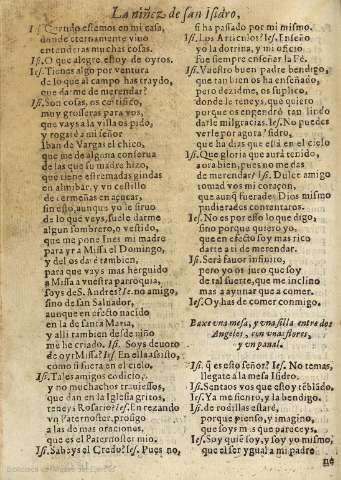 La niñez de san Isidro,
Ies. Quando estemos en mi casa,
donde eternamente viuo
entenderas muchas cosas.
Isi. O que alegre estoy de oyros.
Ies. Tienes algo por ventura
de lo que al campo has traydo,
que darme de merendar?
Isi. Son cosas, os certifico,
muy grosseras para vos,
que vays a la villa os pido,
y rogaré a mi señor
Iban de Vargas el chico,
que me dè alguna conserua
de las que su madre hizo,
que tiene estremadas gindas
en almibar, y vn cestillo
de cermeñas en açucar,
sin esto, aunque yo le siruo
de lo que veys, suele darme
algun sombrero, o vestido,
que me pone Ines mi madre
para yr a Missa el Domingo,
y del os darè tambien,
para que vays mas herguido
a Missa a vuestra parroquia,
soys de S. Andres? Ies. no amigo,
sino de san Saluador,
aunque en efecto nacido
en la de santa Maria,
y alli tambien desde niño
me he criado. Isi. Soys deuoto
de oyr Missa? Ies. En ella assisto,
como si fuera en el cielo.
Isi. Tales amigos codicio,
y no muchachos trauiessos,
que dan en la Iglesia gritos,
teneys Rosario? Ies. En rezando
vn Paternoster, prosigo
a las de mas oraciones,
que es el Paternoster mio.
Isi. Sabeys el Credo? Ies. Pues no,
si ha passado por mi mismo.
Isi. Los Articulos? Ies. Enseño
yo la dotrina, y mi oficio
fue siempre enseñar la Fè.
Isi. Vuestro buen padre bendigo,
que tan bien os ha enseñado,
pero dezidme, os suplico,
donde le teneys, que quiero
porque os engendrò tan lindo
darle mil gracias. Ies. No puedes
verle por agora Isidro,
que ha dias que està en el cielo
Isi. Que gloria que aurà tenido,
aora bien, pues no me das
de merendar? Isi. Dulce amigo
tomad vos mi coraçon,
que aun q̃ fuerades Dios mismo
pudierades contentaros.
Ies. No es por esso lo que digo,
sino porque quiero yo,
que en efecto soy mas rico
darte a ti de merendar.
Isi. Serà fauor infinito,
pero yo os juro que soy
de tal suerte, que me inclino
mas a ayunar que a comer.
Ies. Oy has de comer conmigo.
Baxe vna mesa, y vna silla entre dos
Angeles, con vnas flores,
y vn panal.
Isi. q̃ es esto señor? Ies. No temas,
llegate a la mesa Isidro.
Isi. Sentaos vos que estoy tẽblãdo.
Ies. Ya me siento, y la bendigo.
Isi. de rodillas estaré,
porque pienso, y imagino,
que soys mas que pareceys.
Ies. Soy quien soy, y soy yo mismo,
que el ser ygual a mi padre
ne